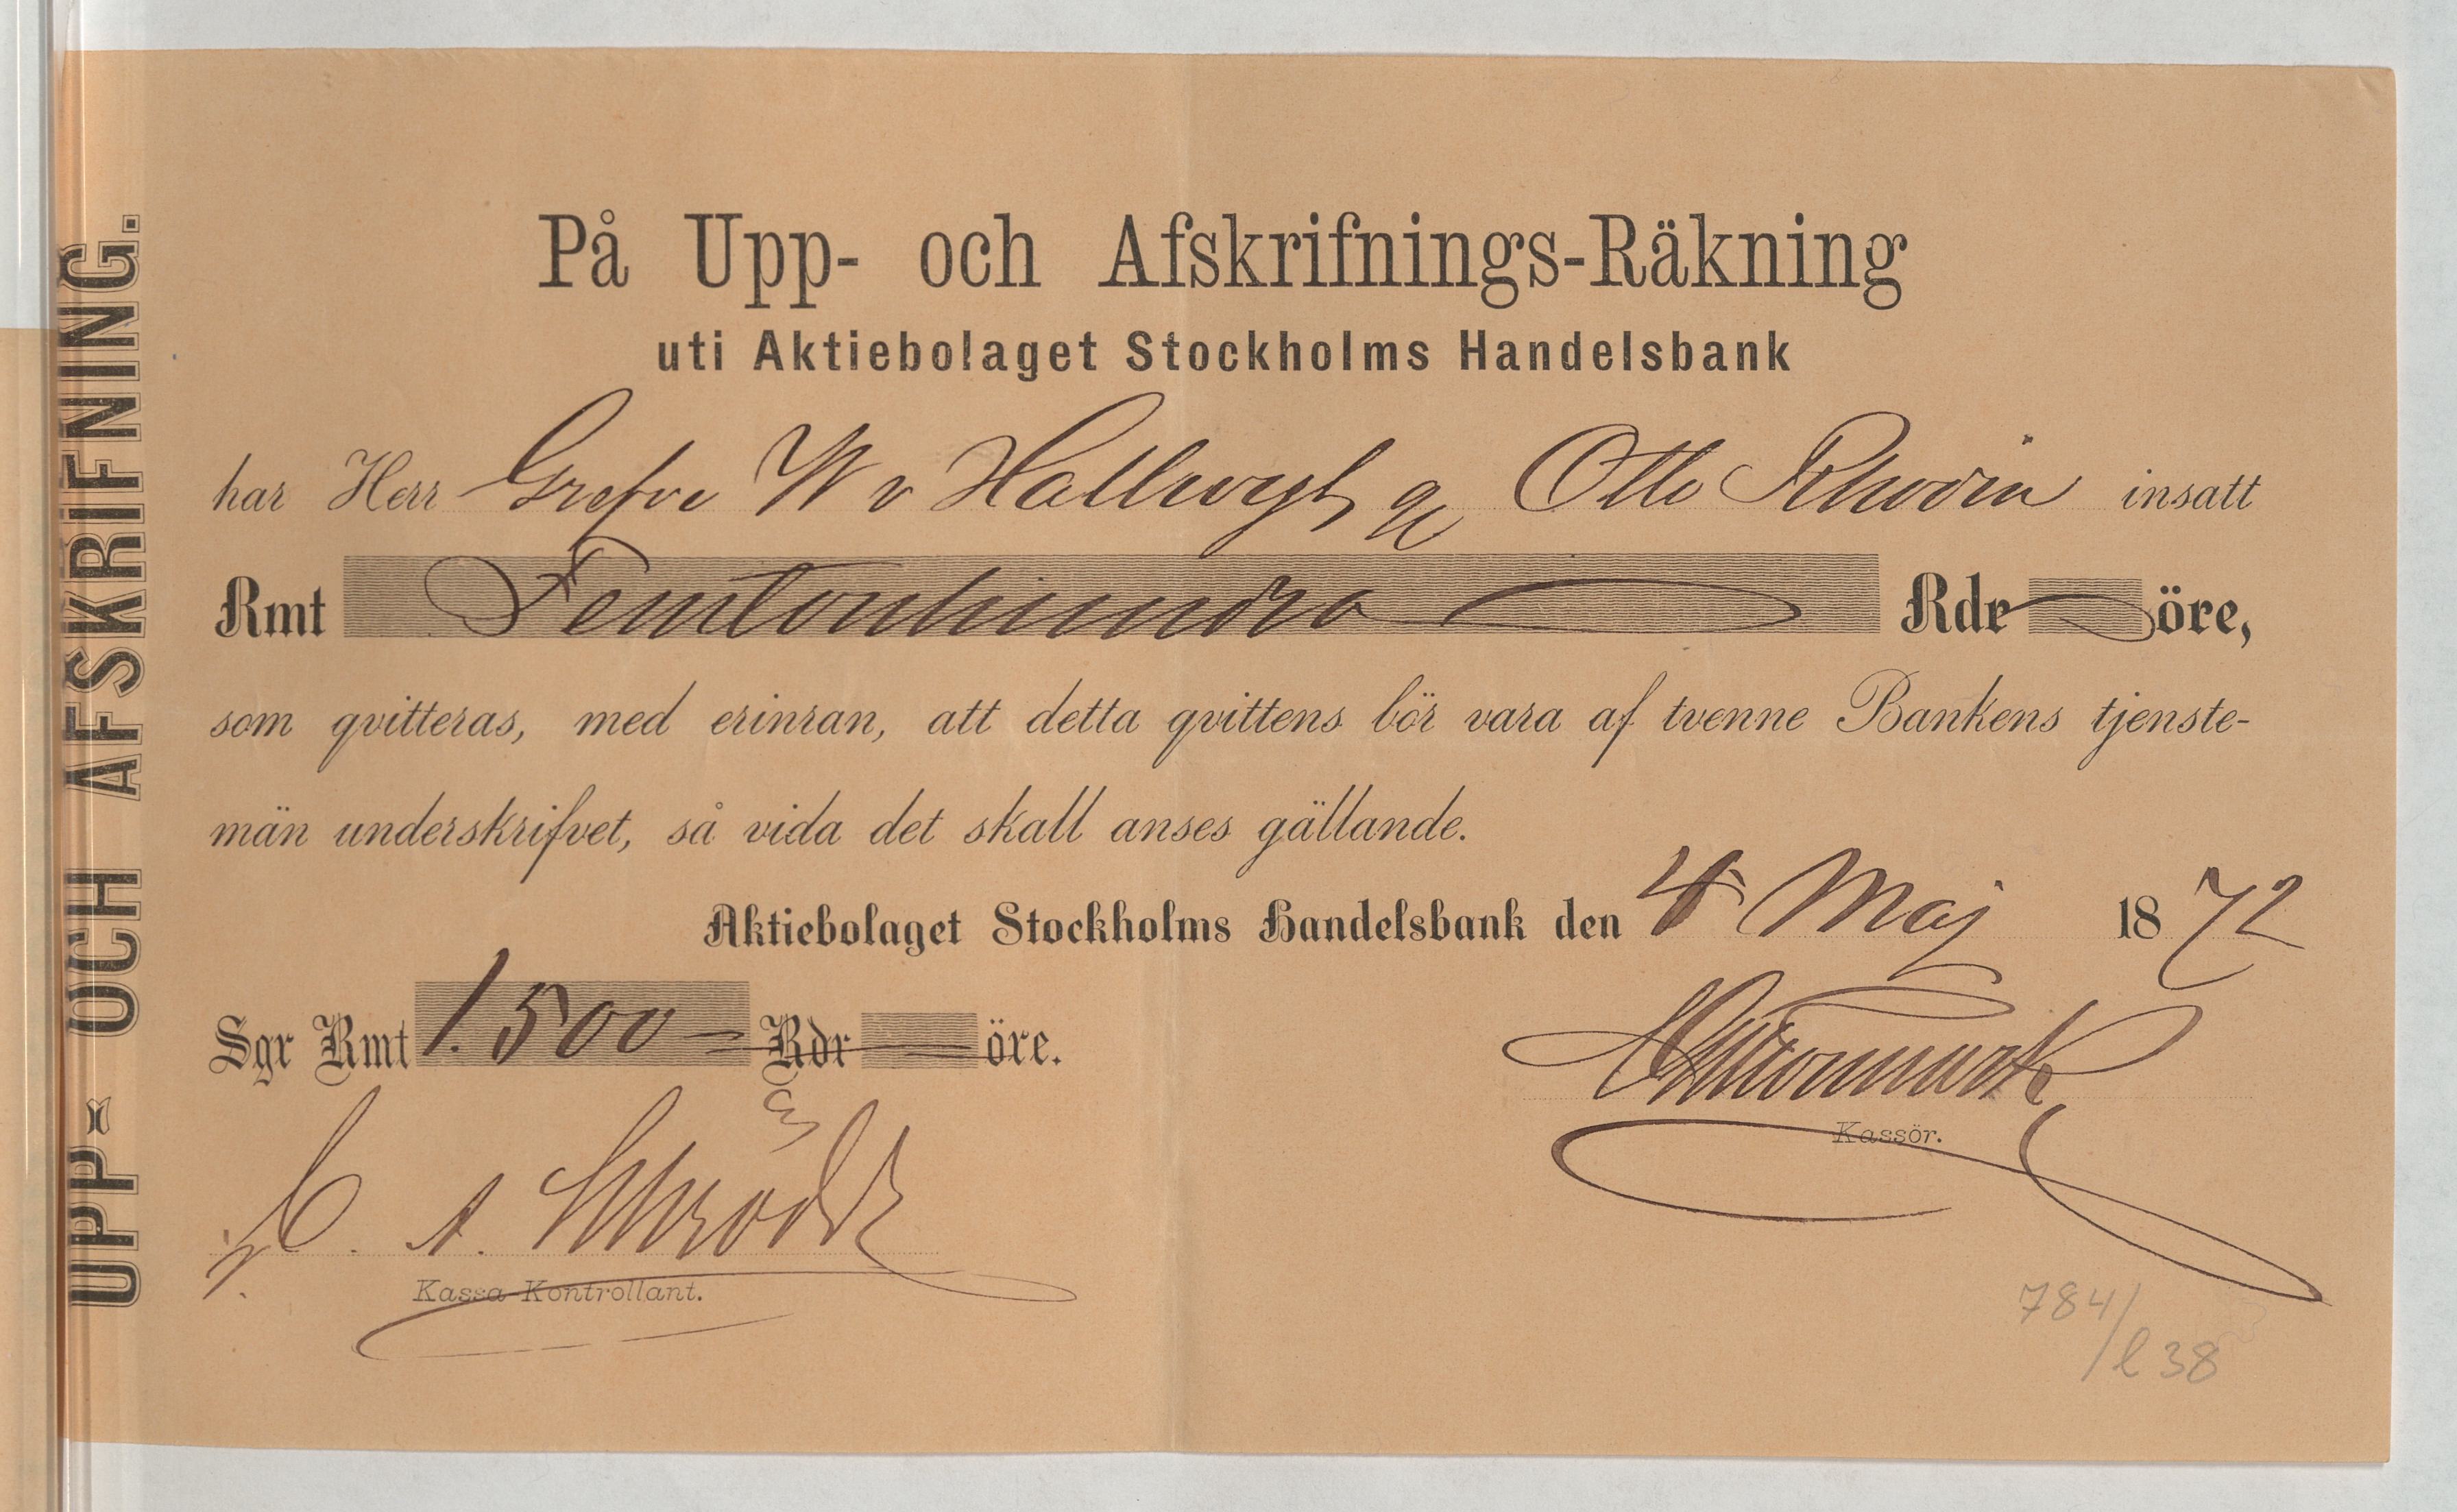 UPP- OCH AFSKRIFNING.
På Upp- och Afskrifnings-Räkning
uti Aktiebolaget Stockholms Handelsbank
har Herr Grefve W v Hallwyl Otto insatt
Rmt Femtonhundra Rdr öre,
som qvitteras, med erinran, att detta qvittens bör vara af tvenne Bankens tjenste-
män underskrifvet, så vida det skall anses gällande.
Aktiebolaget Stockholms Handelsbank den 4 Maj 1872
Sgr Rmt 1.500 Rdr öre.
Kassör.
C. A. Schröder
Kassa-Kontrollant.
784/
l 38